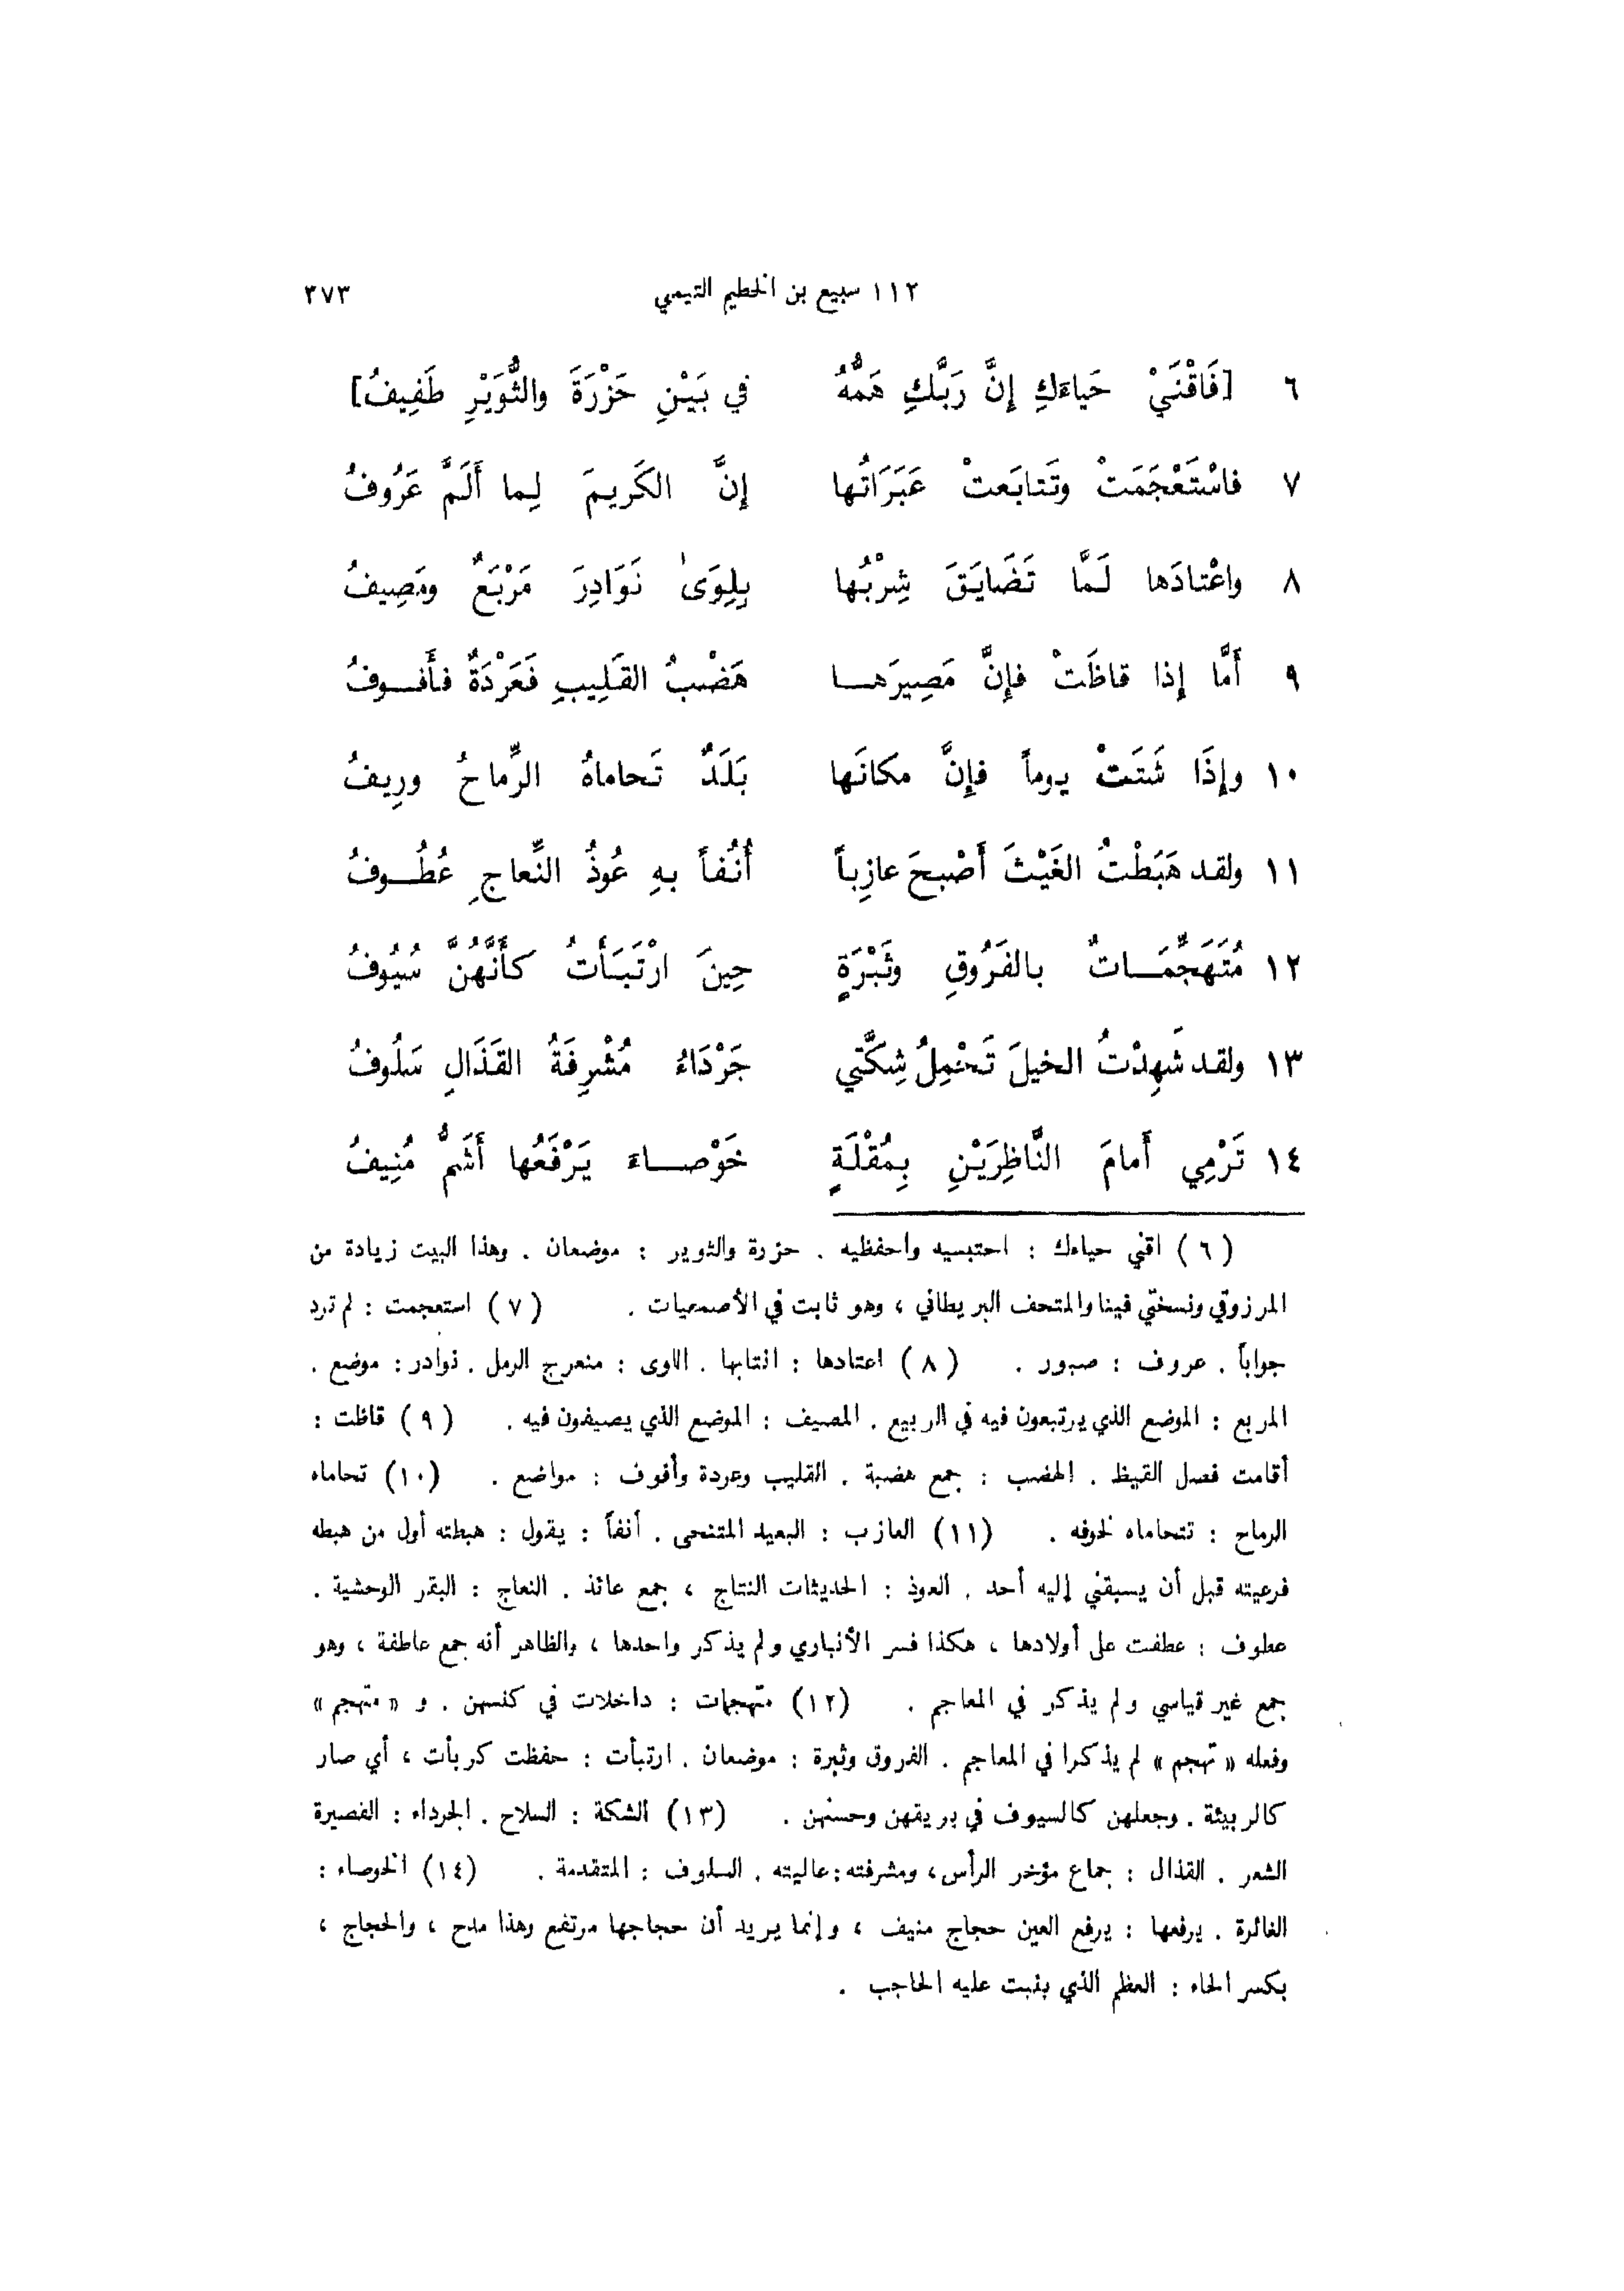 ١١٢ سبيع بن الخطيم التيمي ٣٧٣
٦ [فَاقْنَيْ حَياءَكِ إِنَّ رَبَّكِ هَمُّهُ في بَيْنِ حَزْرَةَ والثُّوَيْرِ طَفِيفُ]
٧ فاسْتَعْجَمَتْ وتَتابَعتْ عَبَرَاتُها إِنَّ الكَرِيمَ لِما أَلَمَّ عَرُوفُ
٨ واعْتادَها لَمَّا تَضَايَقَ شِرْبُها بِلِوَىٰ نَوَادِرَ مَرْبَعٌ ومَصِيفُ
٩ أَمَّا إِذا قاظَتْ فإِنَّ مَصِيرَها هَضْبُ القَلِيبِ فَعَرْدَةٌ فأَفوفُ
١٠ وإِذَا شَتَتْ يوماً فإِنَّ مكانَها بَلَدٌ تَحاماهُ الرِّماحُ ورِيفُ
١١ ولقد هَبَطْتُ الغَيْثَ أَصْبحَ عازِباً أُنُفاً بهِ عُوذُ النِّعاجِ عُطُوفُ
١٢ مُتَهَجِّمَاتٌ بالفَرُوقِ وثَبْرَةٍ حِينَ ارْتَبَأتُ كأَنَّهُنَّ سُيُوفُ
١٣ ولقد شَهِدْتُ الخيلَ تَحْمِلُ شِكَّتي جَرْدَاءُ مُشْرِفَةُ القَذَالِ سَلُوفُ
١٤ تَرْمِي أَمامَ النَّاظِرَيْنِ بِمُقْلَةٍ خَوْصاءَ يَرْفَعُها أَشَمُّ مُنِيفُ
(٦) اقني حياءك : احتبسيه واحفظيه . حزرة والثوير : موضعان . وهذا البيت زيادة من
المرزوقي ونسختي فينا والمتحف البريطاني ، وهو ثابت في الأصمعيات . (٧) استعجمت : لم ترد
جواباً . عروف : صبور . (٨) اعتادها : انتابها . اللوى : منعرج الرمل . نوادر : موضع .
المربع : الموضع الذي يرتبعون فيه في الربيع . المصيف : الموضع الذي يصيفون فيه . (٩) قاظت :
أقامت فصل القيظ . الهضب : جمع هضبة . القليب وعردة وأفوف : مواضع . (١٠) تحاماه
الرماح : تتحاماه لخوفه . (١١) العازب : البعيد المتنحى . أنفاً : يقول : هبطته أول من هبطه
فرعيته قبل أن يسبقني إليه أحد . العوذ : الحديثات النتاج ، جمع عائذ . النعاج : البقر الوحشية .
عطوف : عطفت على أولادها ، هكذا فسر الأنباري ولم يذكر واحدها ، والظاهر أنه جمع عاطفة ، وهو
جمع غير قياسي ولم يذكر في المعاجم . (١٢) متهجمات : داخلات في كنسهن . و « متهجم »
وفعله « تهجم » لم يذكرا في المعاجم . الفروق وثبرة : موضعان . ارتبأت : حفظت كربأت ، أي صار
كالربيئة . وجعلهن كالسيوف في بريقهن وحسنهن . (١٣) الشكة : السلاح . الجرداء : القصيرة
الشعر . القذال : جماع مؤخر الرأس ، ومشرفته : عاليته . السلوف : المتقدمة . (١٤) الخوصاء :
الغائرة . يرفعها : يرفع العين حجاج منيف ، وإنما يريد أن حجاجها مرتفع وهذا مدح ، والحجاج ،
بكسر الحاء : العظم الذي ينبت عليه الحاجب .